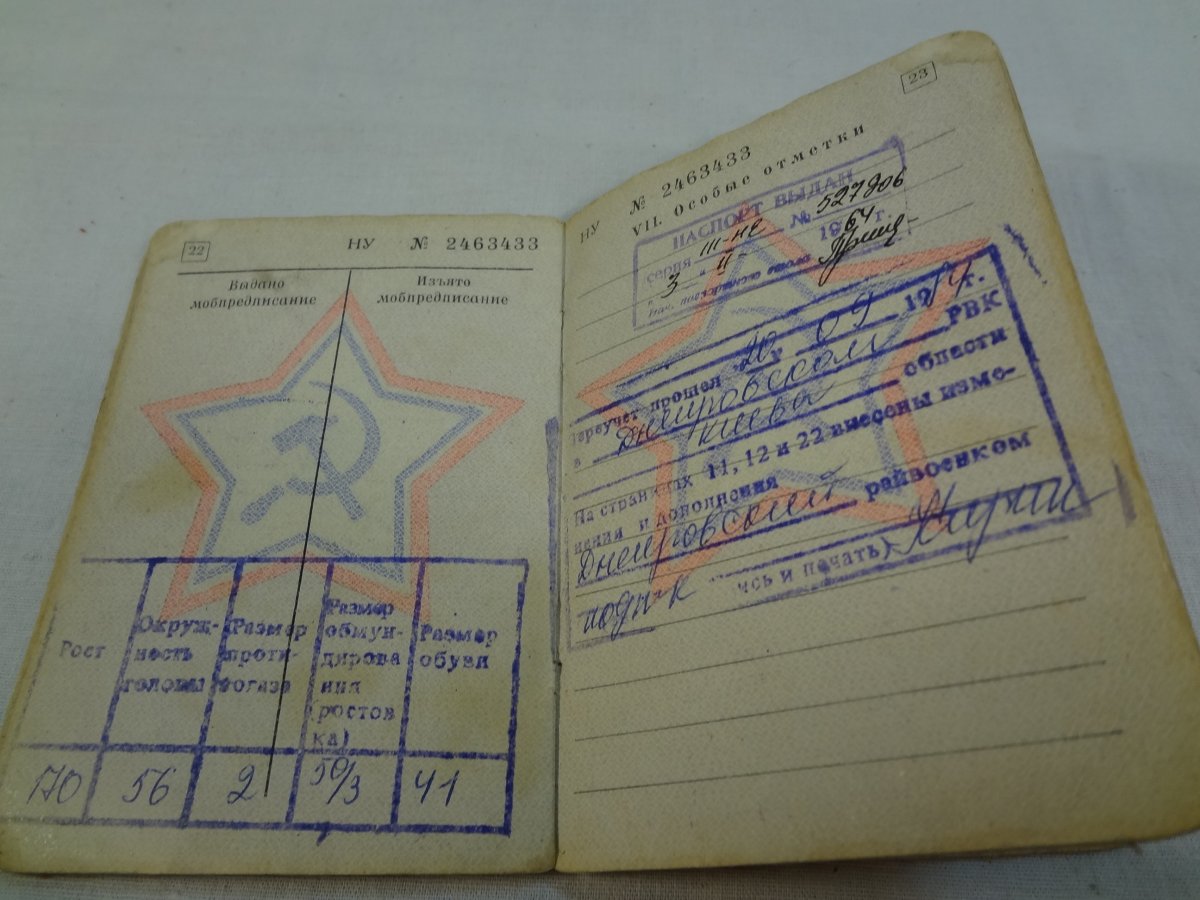 22
НУ № 2463433
Выдано мобпредписание
Изъято мобпредписание
Рост
Окруж-
ность
головы
Размер
проти-
вогаза
Размер
обмун-
дирова
ния
(ростов
ка)
Размер
обуви
170 56 2 50/3 41
23
НУ № 2463433
VII. Особые отметки
ПАСПОРТ ВЫДАН
серия III-НС № 527906
"3" II- 1964 г.
Переучет прошел 20 09 19 г.
в Днепровском РВК
Киева области
На страницах 11, 12 и 22 внесены изме-
нения и дополнения
Днепровский райвоенком
подп-к
ись и печать)